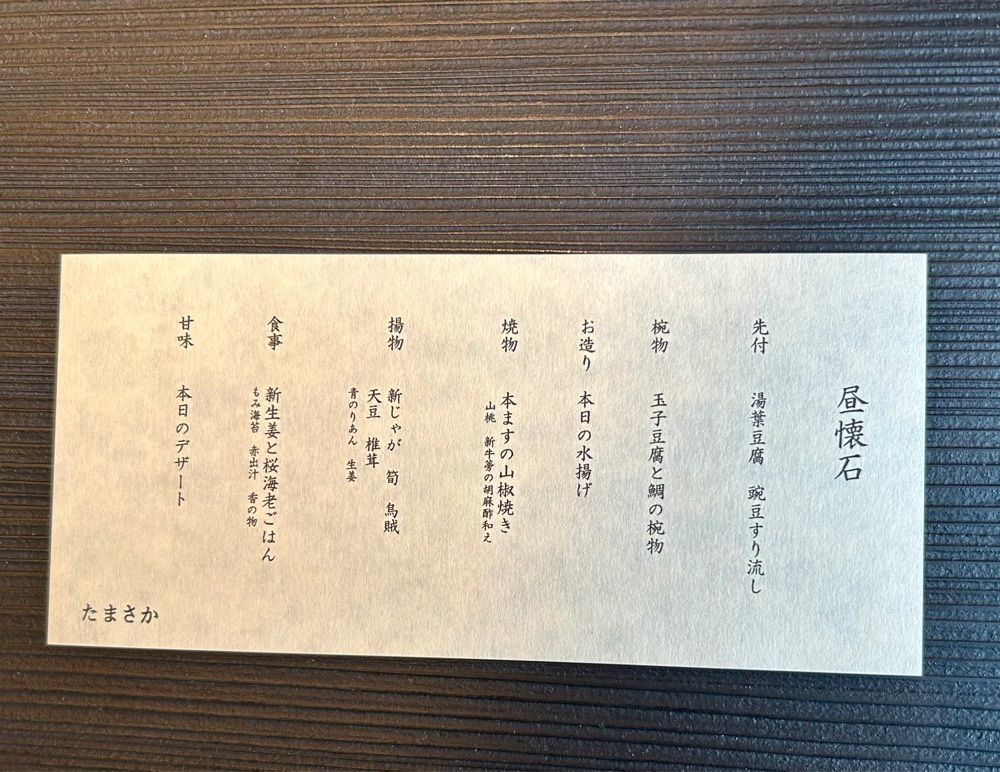 昼懐石
先付 湯葉豆腐 豌豆すり流し
椀物 玉子豆腐と鯛の椀物
お造り 本日の水揚げ
焼物 本ますの山椒焼き
山桃 新牛蒡の胡麻酢和え
揚物 新じゃが 筍 烏賊
天豆 椎茸
青のりあん 生姜
食事 新生姜と桜海老ごはん
もみ海苔 赤出汁 香の物
甘味 本日のデザート
たまさか